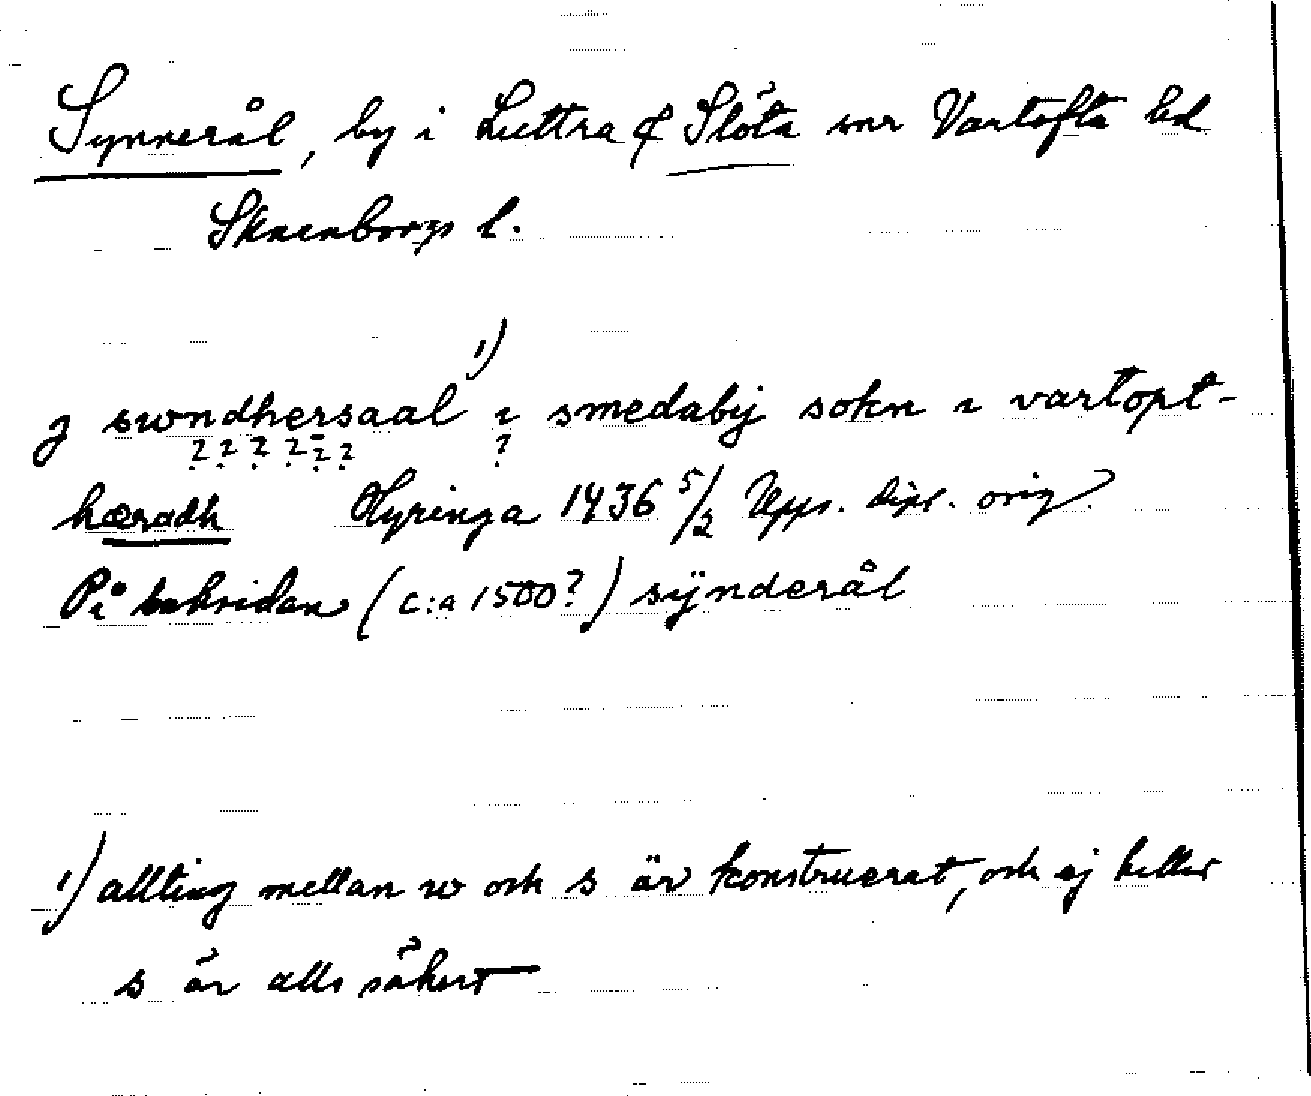 Synnerål, by i Luttra & Slöta snr Vartofta hd
Skaraborgs l.
j swndhersaal 1) i smedabÿ sokn i vartopt-
? ? ? ? ? ? ?
hæradh Hyringa 1436 5/2 Upps. dipl. orig?
På baksidan (c:a 1500?) sÿnderål
1) allting mellan w och s är konstruerat, och ej heller
s är alls säkert